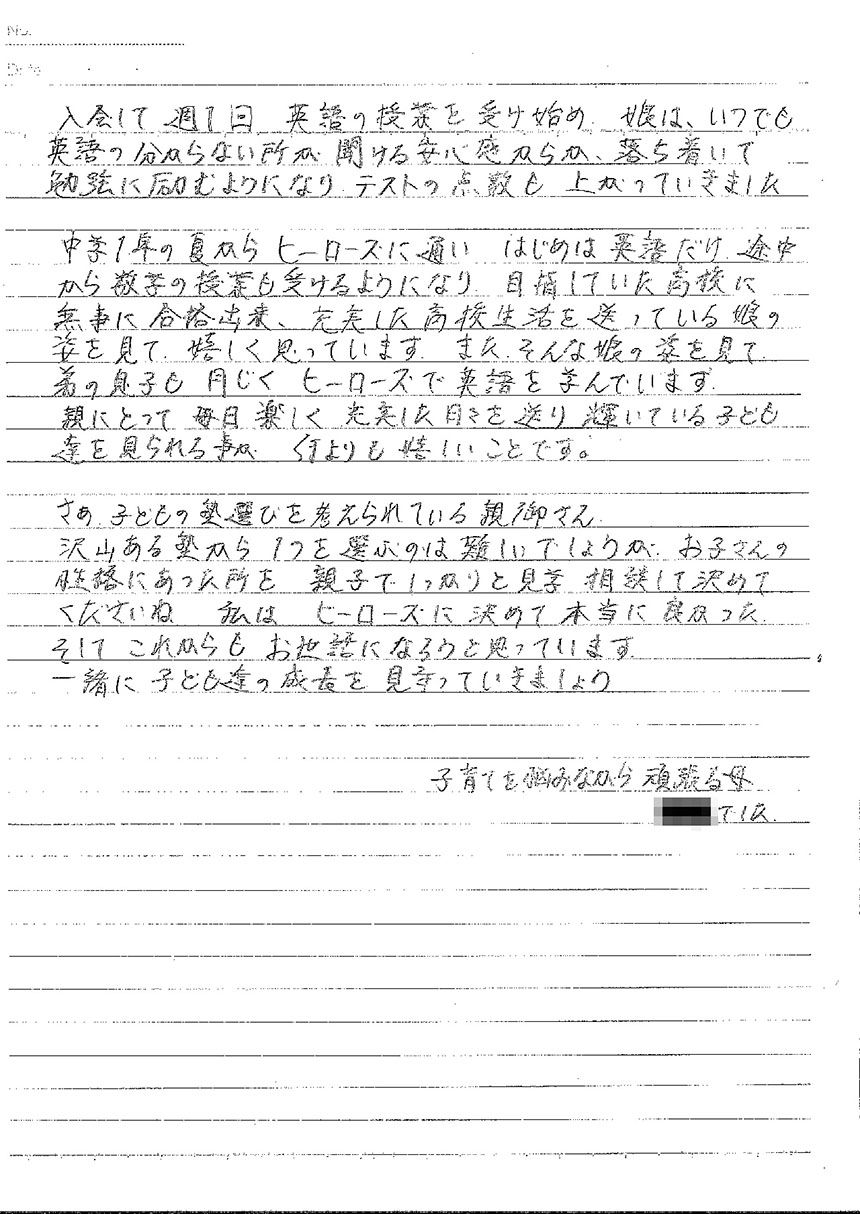 No.
Date
入会して 週1回 英語の授業を受け始め 娘は、いつでも
英語の分からない所が 聞ける安心感からか、落ち着いて
勉強に励むようになり テストの点数も 上がっていきました
中学1年の夏から ヒーローズに通い はじめは英語だけ 途中
から数学の授業も受けるようになり 目指していた高校に
無事に合格出来、充実した高校生活を送っている娘の
姿を見て 嬉しく思っています また そんな娘の姿を見て
弟の息子も 同じく ヒーローズで英語を学んでいます
親にとって 毎日楽しく 充実した日々を送り 輝いている子ども
達を見られる事が 何よりも嬉しいことです。
さあ 子どもの塾選びを考えられている親御さん
沢山ある塾から 1つを選ぶのは難しいでしょうが お子さんの
性格にあった所を 親子でしっかりと見学 相談して決めて
くださいね 私は ヒーローズに決めて本当に良かった
そして これからも お世話になろうと思っています
一緒に 子ども達の成長を 見守っていきましょう
子育てを悩みながら 頑張る母
でした